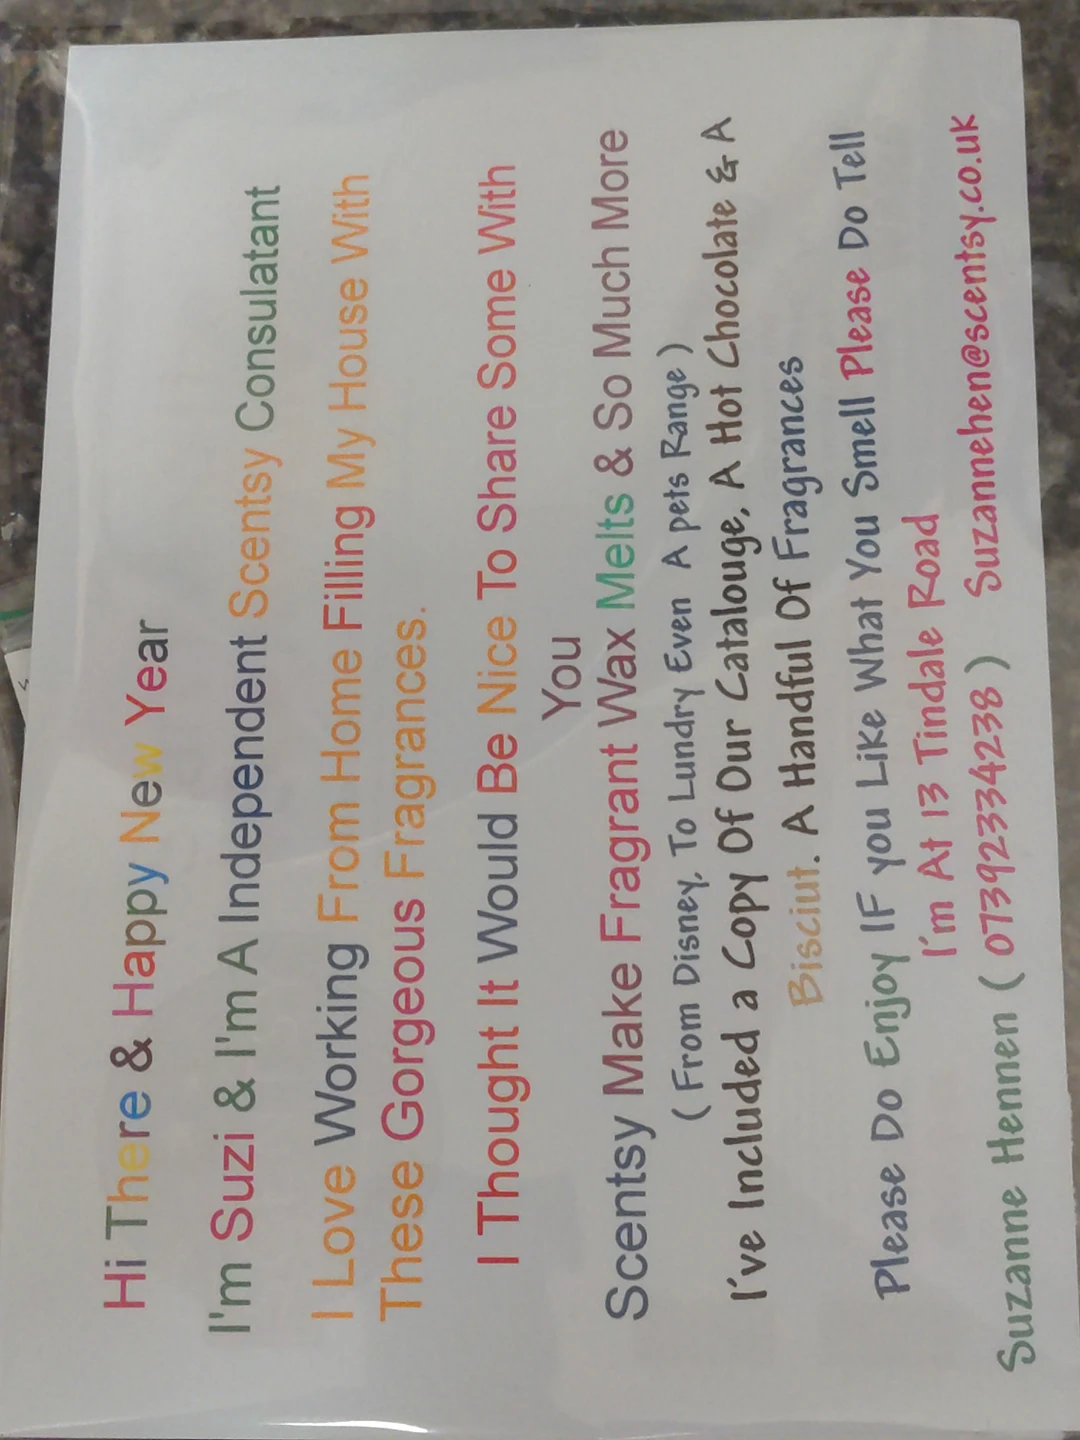 Hi There & Happy New Year
I'm Suzi & I'm A Independent Scentsy Consulatant
I Love Working From Home Filling My House With
These Gorgeous Fragrances.
I Thought It Would Be Nice To Share Some With
You
Scentsy Make Fragrant Wax Melts & So Much More
( From Disney, To Lundry Even A pets Range )
I've Included a Copy Of Our Catalouge, A Hot Chocolate & A
Bisciut. A Handful Of Fragrances
Please Do Enjoy IF you Like What You Smell Please Do Tell
I'm At 13 Tindale Road
Suzanne Hennen ( 07392334238 ) Suzannehen@scentsy.co.uk